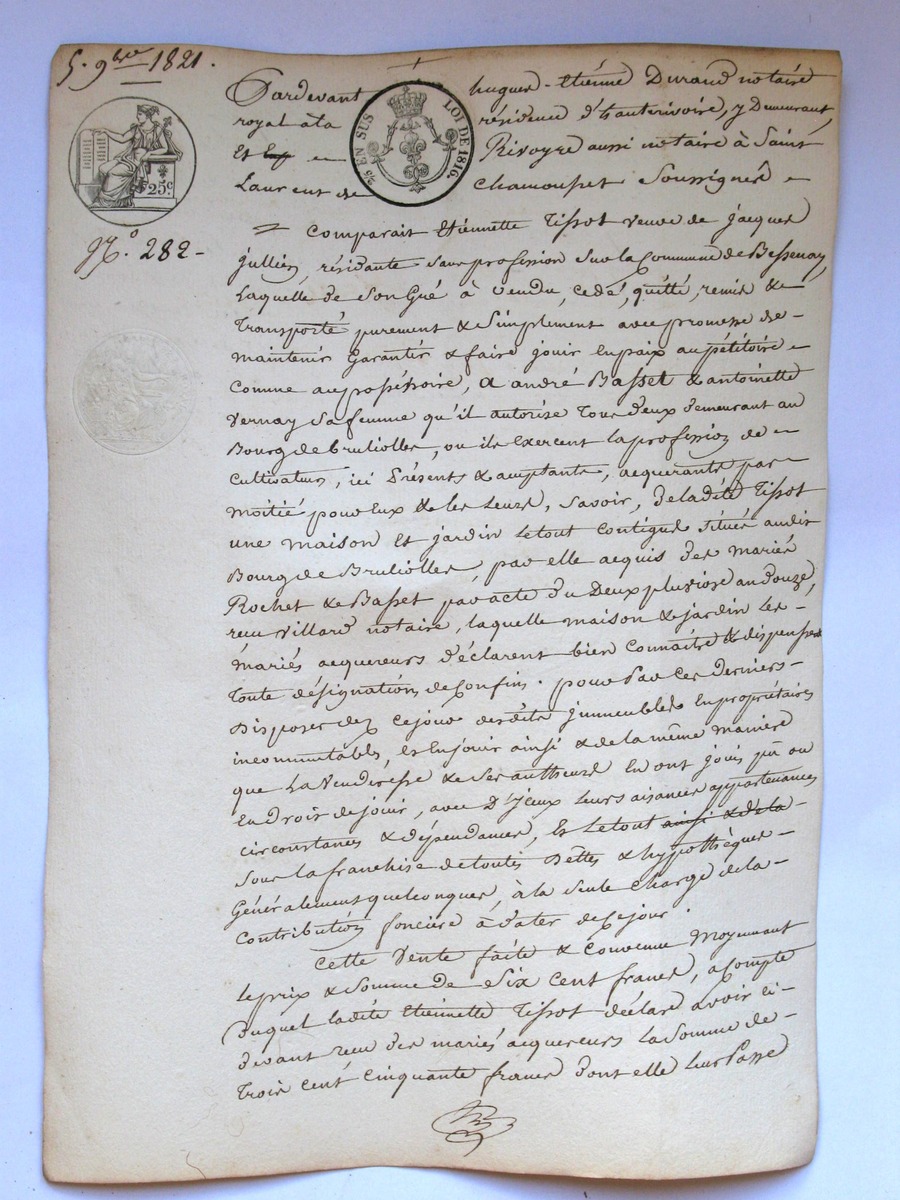 5. 9bre 1821.
Pardevant hugues-Etienne Durand notaire
royal à la résidence d'hauterivoire, y Demeurant,
Et en Rivoyre aussi notaire à Saint
Laurent de Chamousset Soussignés
EN SUS LOI DE 1816
25c.
N.° 282-
= Comparait Etiennette Tissot veuve de jacques
jullien, résidante Sans profession Sur la Commune de Bessenay,
Laquelle de Son Gré à vendu, cédé, quitté, remis &
Transporté purement & Simplement avec promesse de-
maintenir Garantir & faire jouir en paix au pétitoire
Comme au possessoire, a andré Basset & antoinette
Vernay Sa femme qu'il autorise Tous deux demeurant au
Bourg de bruliolles, ou ils exercent la profession de
Cultivateurs, ici Présents & acceptants, acquerants par
moitié pour Eux & les Leurs, Savoir, de ladite Tissot
une maison Et jardin Le tout Contigus Situés audit
Bourg de Bruliolles, par elle acquis des mariés
Rochet & Basset par acte du Deux pluviose an douze,
reçu Villard notaire, laquelle maison & jardin Les-
mariés acquereurs déclarent bien Connaitre & dispenser
Toute désignation de Confins. pour par Ces derniers-
Disposer dez Cejour desdits immeubles En propriétaires
incommutables, et En jouir ainsi & de la même manière
que La Venderesse & Ses autheurs En ont jouis pu ou
En droit de jouir, avec D'iceux Leurs aisances appartenances
circonstances & dépendances, Et Le tout ainsi & de la-
Sous la franchise de toutes Dettes & hypothèques-
Généralement quelconques, à la Seule Charge de la-
Contribution foncière à dater de Cejour.
Cette Vente faite & Convenue Moyennant
Le prix & Somme de Six Cent francs, a Compte
Duquel ladite Etiennette Tissot déclare avoir ci-
devant reçu des mariés acquereurs La Somme de-
Trois Cent Cinquante francs dont elle Leur Passe